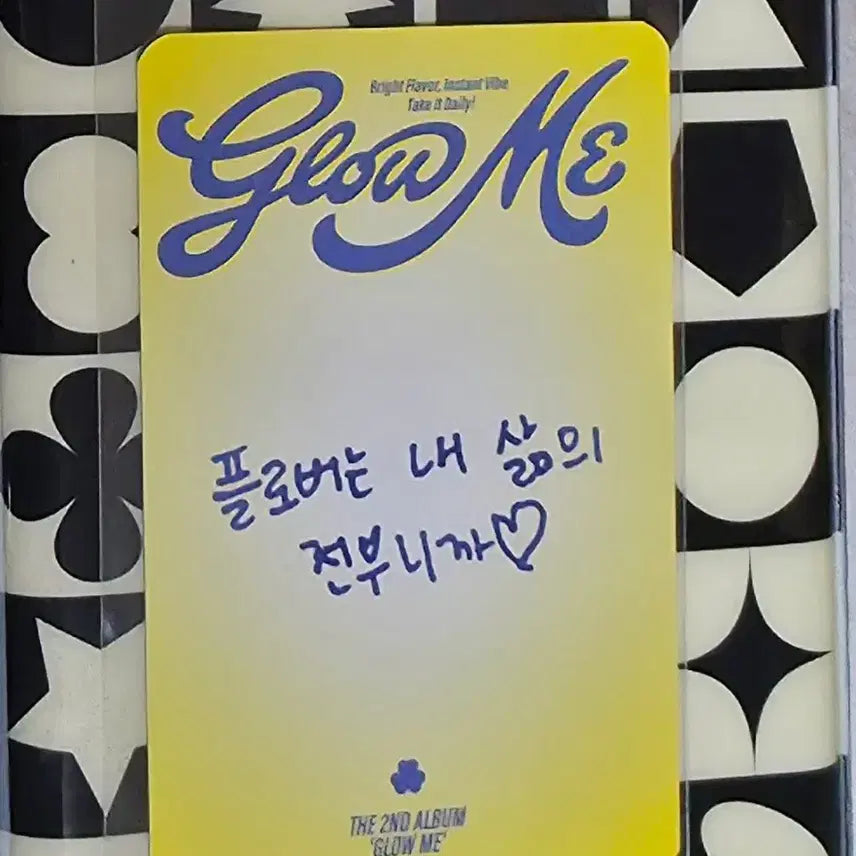 Bright Flavor, Instant Vibe
Take It Daily!
Glow ME
플로버는 내 삶의
전부니까♡
THE 2ND ALBUM
'GLOW ME'